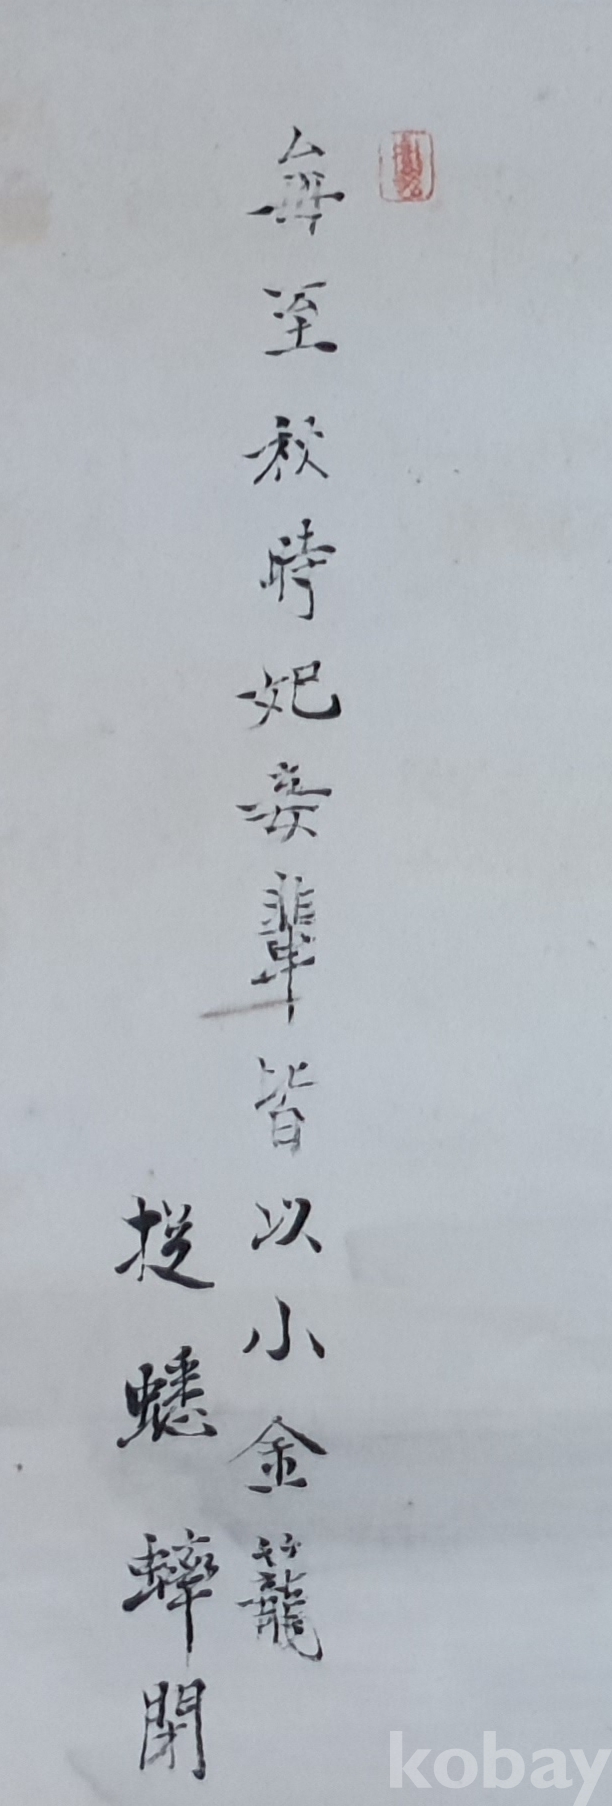 每至秋時妃妾輩皆以小金籠
捉蟋蟀閉
kobay